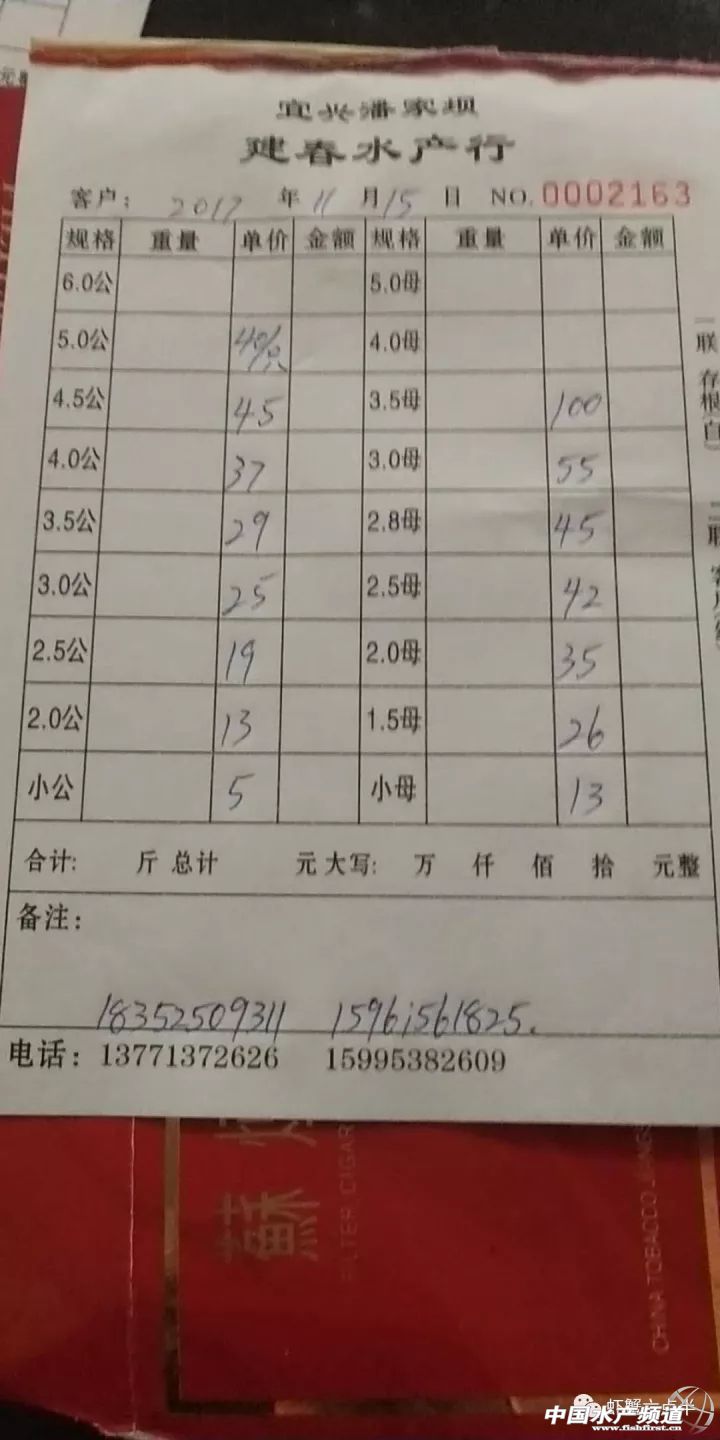 宜兴潘家坝
建春水产行
客户: 2017 年 11 月 15 日 NO. 0002163
规格 重量 单价 金额 规格 重量 单价 金额
6.0公 5.0母
5.0公 40/只 4.0母
4.5公 45 3.5母 100
4.0公 37 3.0母 55
3.5公 29 2.8母 45
3.0公 25 2.5母 42
2.5公 19 2.0母 35
2.0公 13 1.5母 26
小公 5 小母 13
合计: 斤 总计 元 大写: 万 仟 佰 拾 元整
备注:
18352509311 15961561825.
电话: 13771372626 15995382609
一联 存根(白)
二联
蘇
FILTER CIGAR
CHINA TOBACCO JIANGS
虾蟹六点半
中国水产频道
www.fishfirst.cn